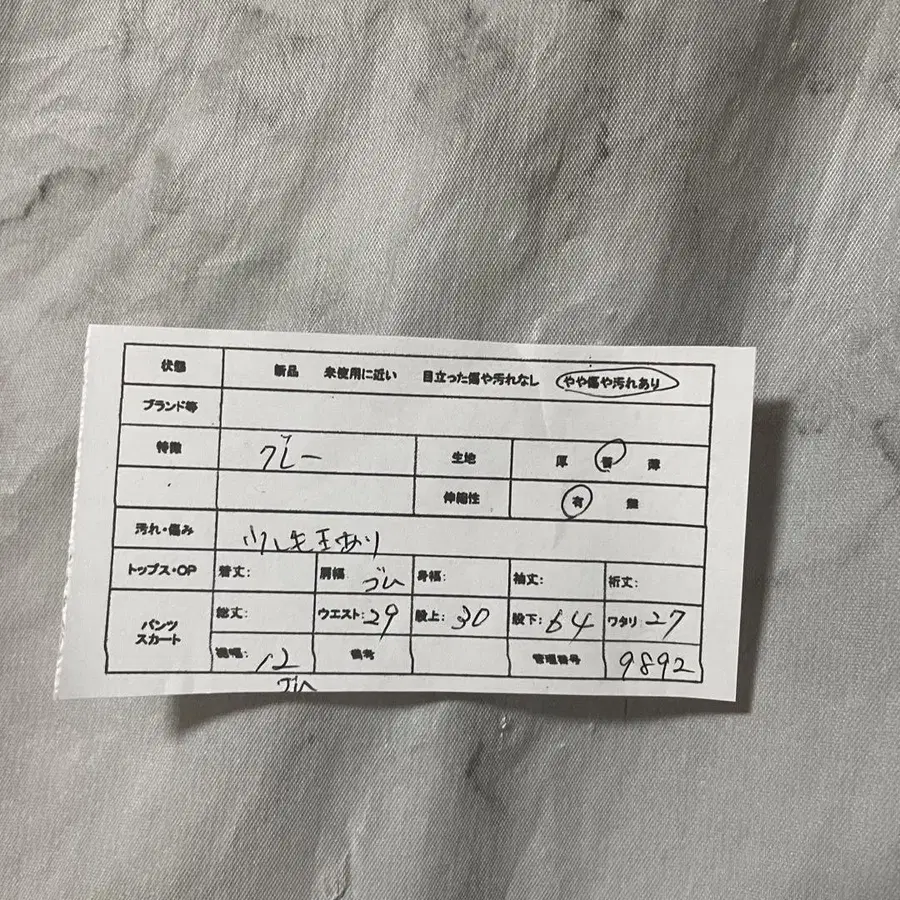 状態 新品 未使用に近い 目立った傷や汚れなし やや傷や汚れあり
ブランド等
特徴 グレー 生地 厚 普 薄
伸縮性 有 無
汚れ・傷み 小
トップス・OP 着丈: 肩幅 ゴム 身幅: 袖丈: 裄丈:
パンツ スカート 総丈: ウエスト:29 股上:30 股下:64 ワタリ:27
裾幅: 12 備考 管理番号 9892
ゴム